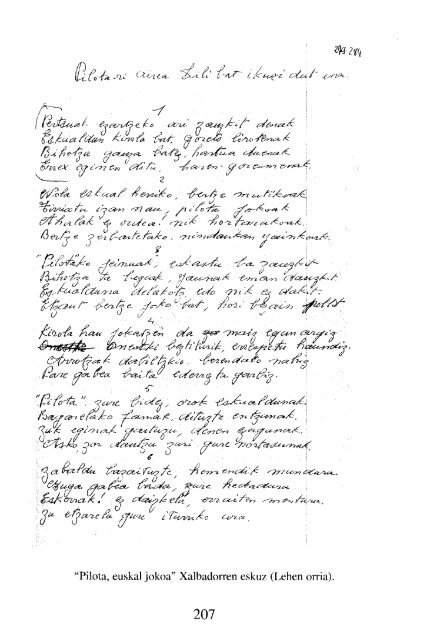 284
Pilota-ri airea Lili bat ikusi dut era.
1
Pertsuak ezartzeko ari zauzkit denak
Eskualdun kirola bat, goreto lirotenak
Bihotza gauza batez, hartua duenak
Errex eginen ditu, haren gorenenak.
2
Nola eskual herriko, bertze mutikoak
Tirriatu izan nau, pilota jokoak
Ahalak ez ordea nik hortarakoak
Bertze zerbaitetako, nindaukan jainkoak.
3
"Pilotako jeinuak, eskastu ba zauzkit
Bihotza ta legeak, jaunak eman dauzkit
Eskualduna delakotz, edo nik ez dakit
Etzaut bertze joko bat, hori bezain pollit
4
Kirola hau jokatzen da maiz egun argiz
Onestki beztiturik, errespetu haundiz
Arrotzak dabiltzkio, berendako nahiz
Pare gabea baita ederrez ta garbiz.
5
"Pilota", zure bidez, orok eskualdunak
Bazarelako famak, dituzte entzunak.
Zuk eginak gaituzu, denen ezagunak
Asko zor dautzu zuri gure nortasunak.
6
Zabaldu bazaituzte, hemendik mundura
gabea bada, zure hedadura
Eskerrak! ez daizkela, erraiten mentura.
Zu etzarela gure iturriko ura.
"Pilota, euskal jokoa" Xalbadorren eskuz (Lehen orria).
207